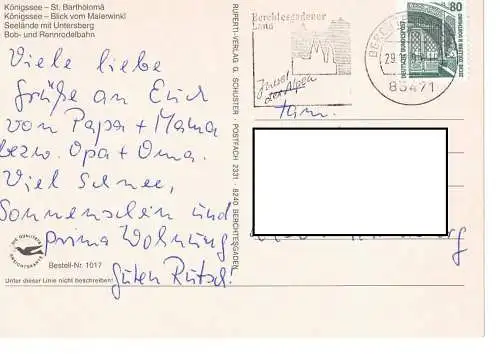 Königssee – St. Bartholomä
Königssee – Blick vom Malerwinkl
Seelände mit Untersberg
Bob- und Rennrodelbahn
Viele liebe
Grüße an Euch
von Papa + Mama
bezw. Opa + Oma.
Viel Schnee,
Sonnenschein und
prima Wohnung
Guten Rutsch!
Bestell-Nr. 1017
Unter dieser Linie nicht beschreiben!
RUPERTI-VERLAG G. SCHUSTER · POSTFACH 2331 · 8240 BERCHTESGADEN
Berchtesgadener
Land
Juwel
der Alpen
29.
83471
80
DEUTSCHE BUNDESPOST
Fam.